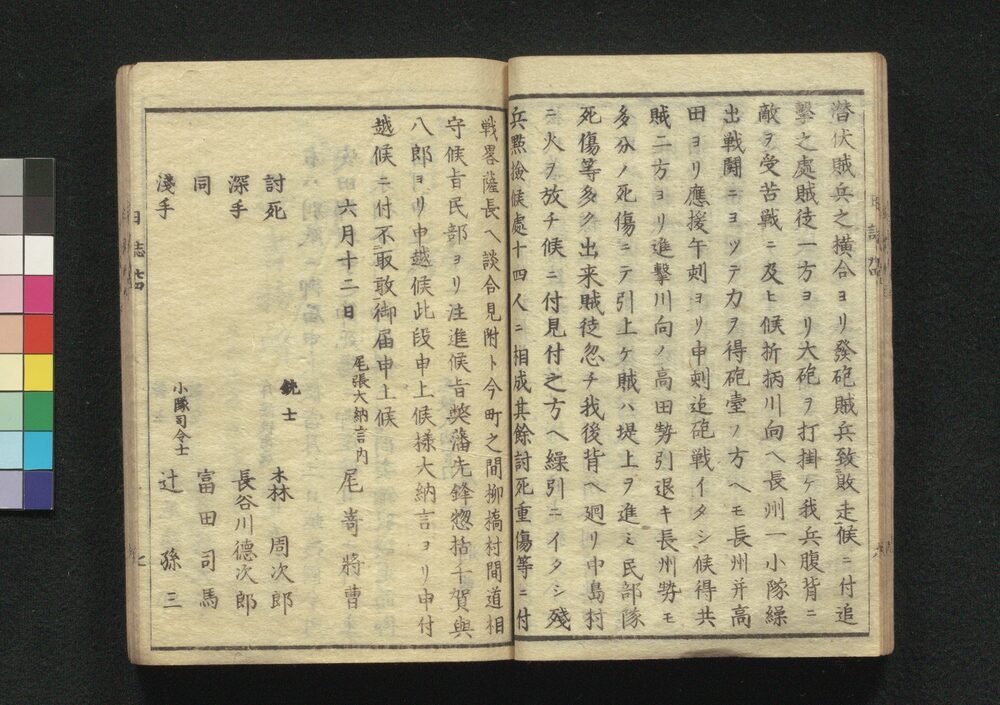 潜伏賊兵之横合ヨリ發砲賊兵致敗走候ニ付追
撃之處賊徒一方ヨリ大砲ヲ打掛ケ我兵腹背ニ
敵ヲ受苦戦ニ及ヒ候折柄川向ヘ長州一小隊繰
出戦鬪ニヨツテ力ヲ得砲臺ノ方ヘモ長州并高
田ヨリ應援午刺ヨリ申刺迠砲戦イタシ候得共
賊二方ヨリ進撃川向ノ高田勢引退キ長州勢モ
多分ノ死傷ニテ引上ケ賊ハ堤上ヲ進ミ民部隊
死傷等多ク出来賊徒忽チ我後背ヘ廻リ中島村
ニ火ヲ放チ候ニ付見付之方ヘ繰引ニイタシ殘
兵㸃撿候處十四人ニ相成其餘討死重傷等ニ付
戦畧薩長ヘ談合見附ト今町之間柳摛村間道相
守候㫖民部ヨリ注進候㫖奬藩先鋒惣括千賀與
八郎ヨリ申越候此段申上候様大納言ヨリ申付
越候ニ付不取敢御届申上候
六月十二日
尾張大納言内
尾嵜將曹
銃士
討死 木森 周次郎
深手 長谷川德次郎
同 富田司馬
小隊司令士
淺手 辻 孫三
日誌
七